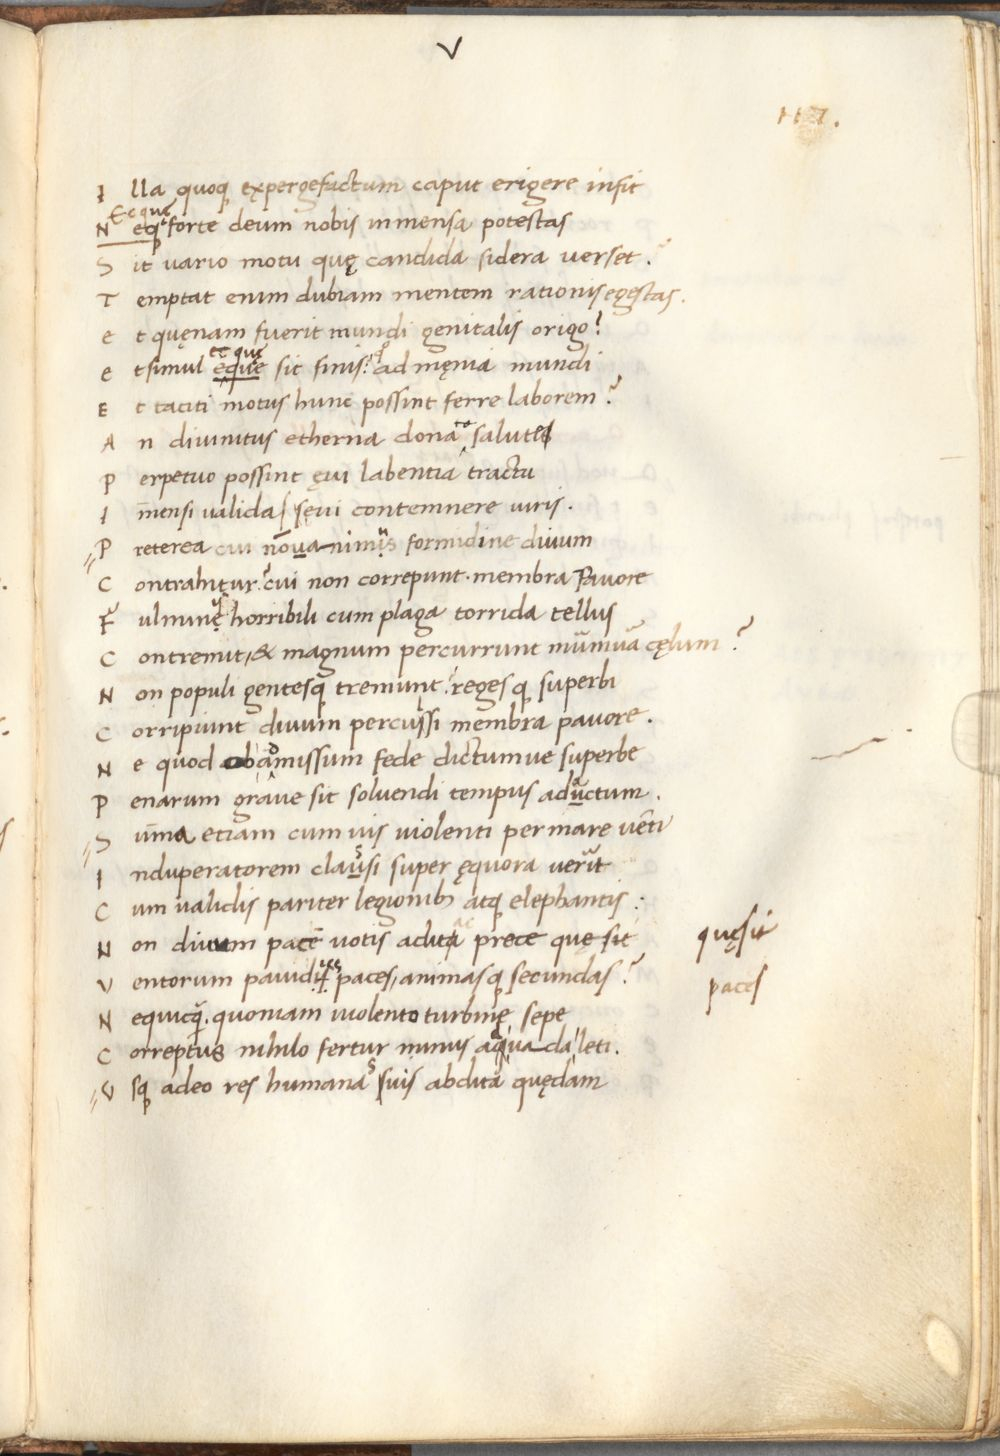 v
117.
I lla quoq expergefactum caput erigere infit
Ecquę
N eq forte deum nobis inmensa potestas
S it vario motu quę candida sidera verset?
T emptat enim dubiam mentem rationis egestas.
e t quęnam fuerit mundi genitalis origo?
ecquę
e t simul eque sit finis? ad męnia mundi
E t taciti motus hunc possint ferre laborem?
A n divinitus etherna dona salute
P erpetuo possint ęvi labentia tractu
I mensi valida sęvi contemnere viris.
P reterea cui formidine divum
C ontrahitur? cui non correpunt membra Pavore
F horribili cum plaga torrida tellus
C ontremit, & magnum percurrunt cęlum?
N on populi gentesq tremunt? reges q superbi
C orripiunt divum percussi membra pavore.
N e quod admissum fede dictumve superbe
P enarum grave sit solvendi tempus
S uma etiam cum vis violenti per mare venti
I nduperatorem super ęquora verit
C um validis pariter legionib atq elephantis:
N on divum pacē votis prece quę sit
quęsit
V entorum pavidus paces, animas q secundas?
paces
N equicq. quoniam violento turbine sepe
C orreptus nihilo fertur minus leti.
V sq adeo res humanas suis abdita quędam